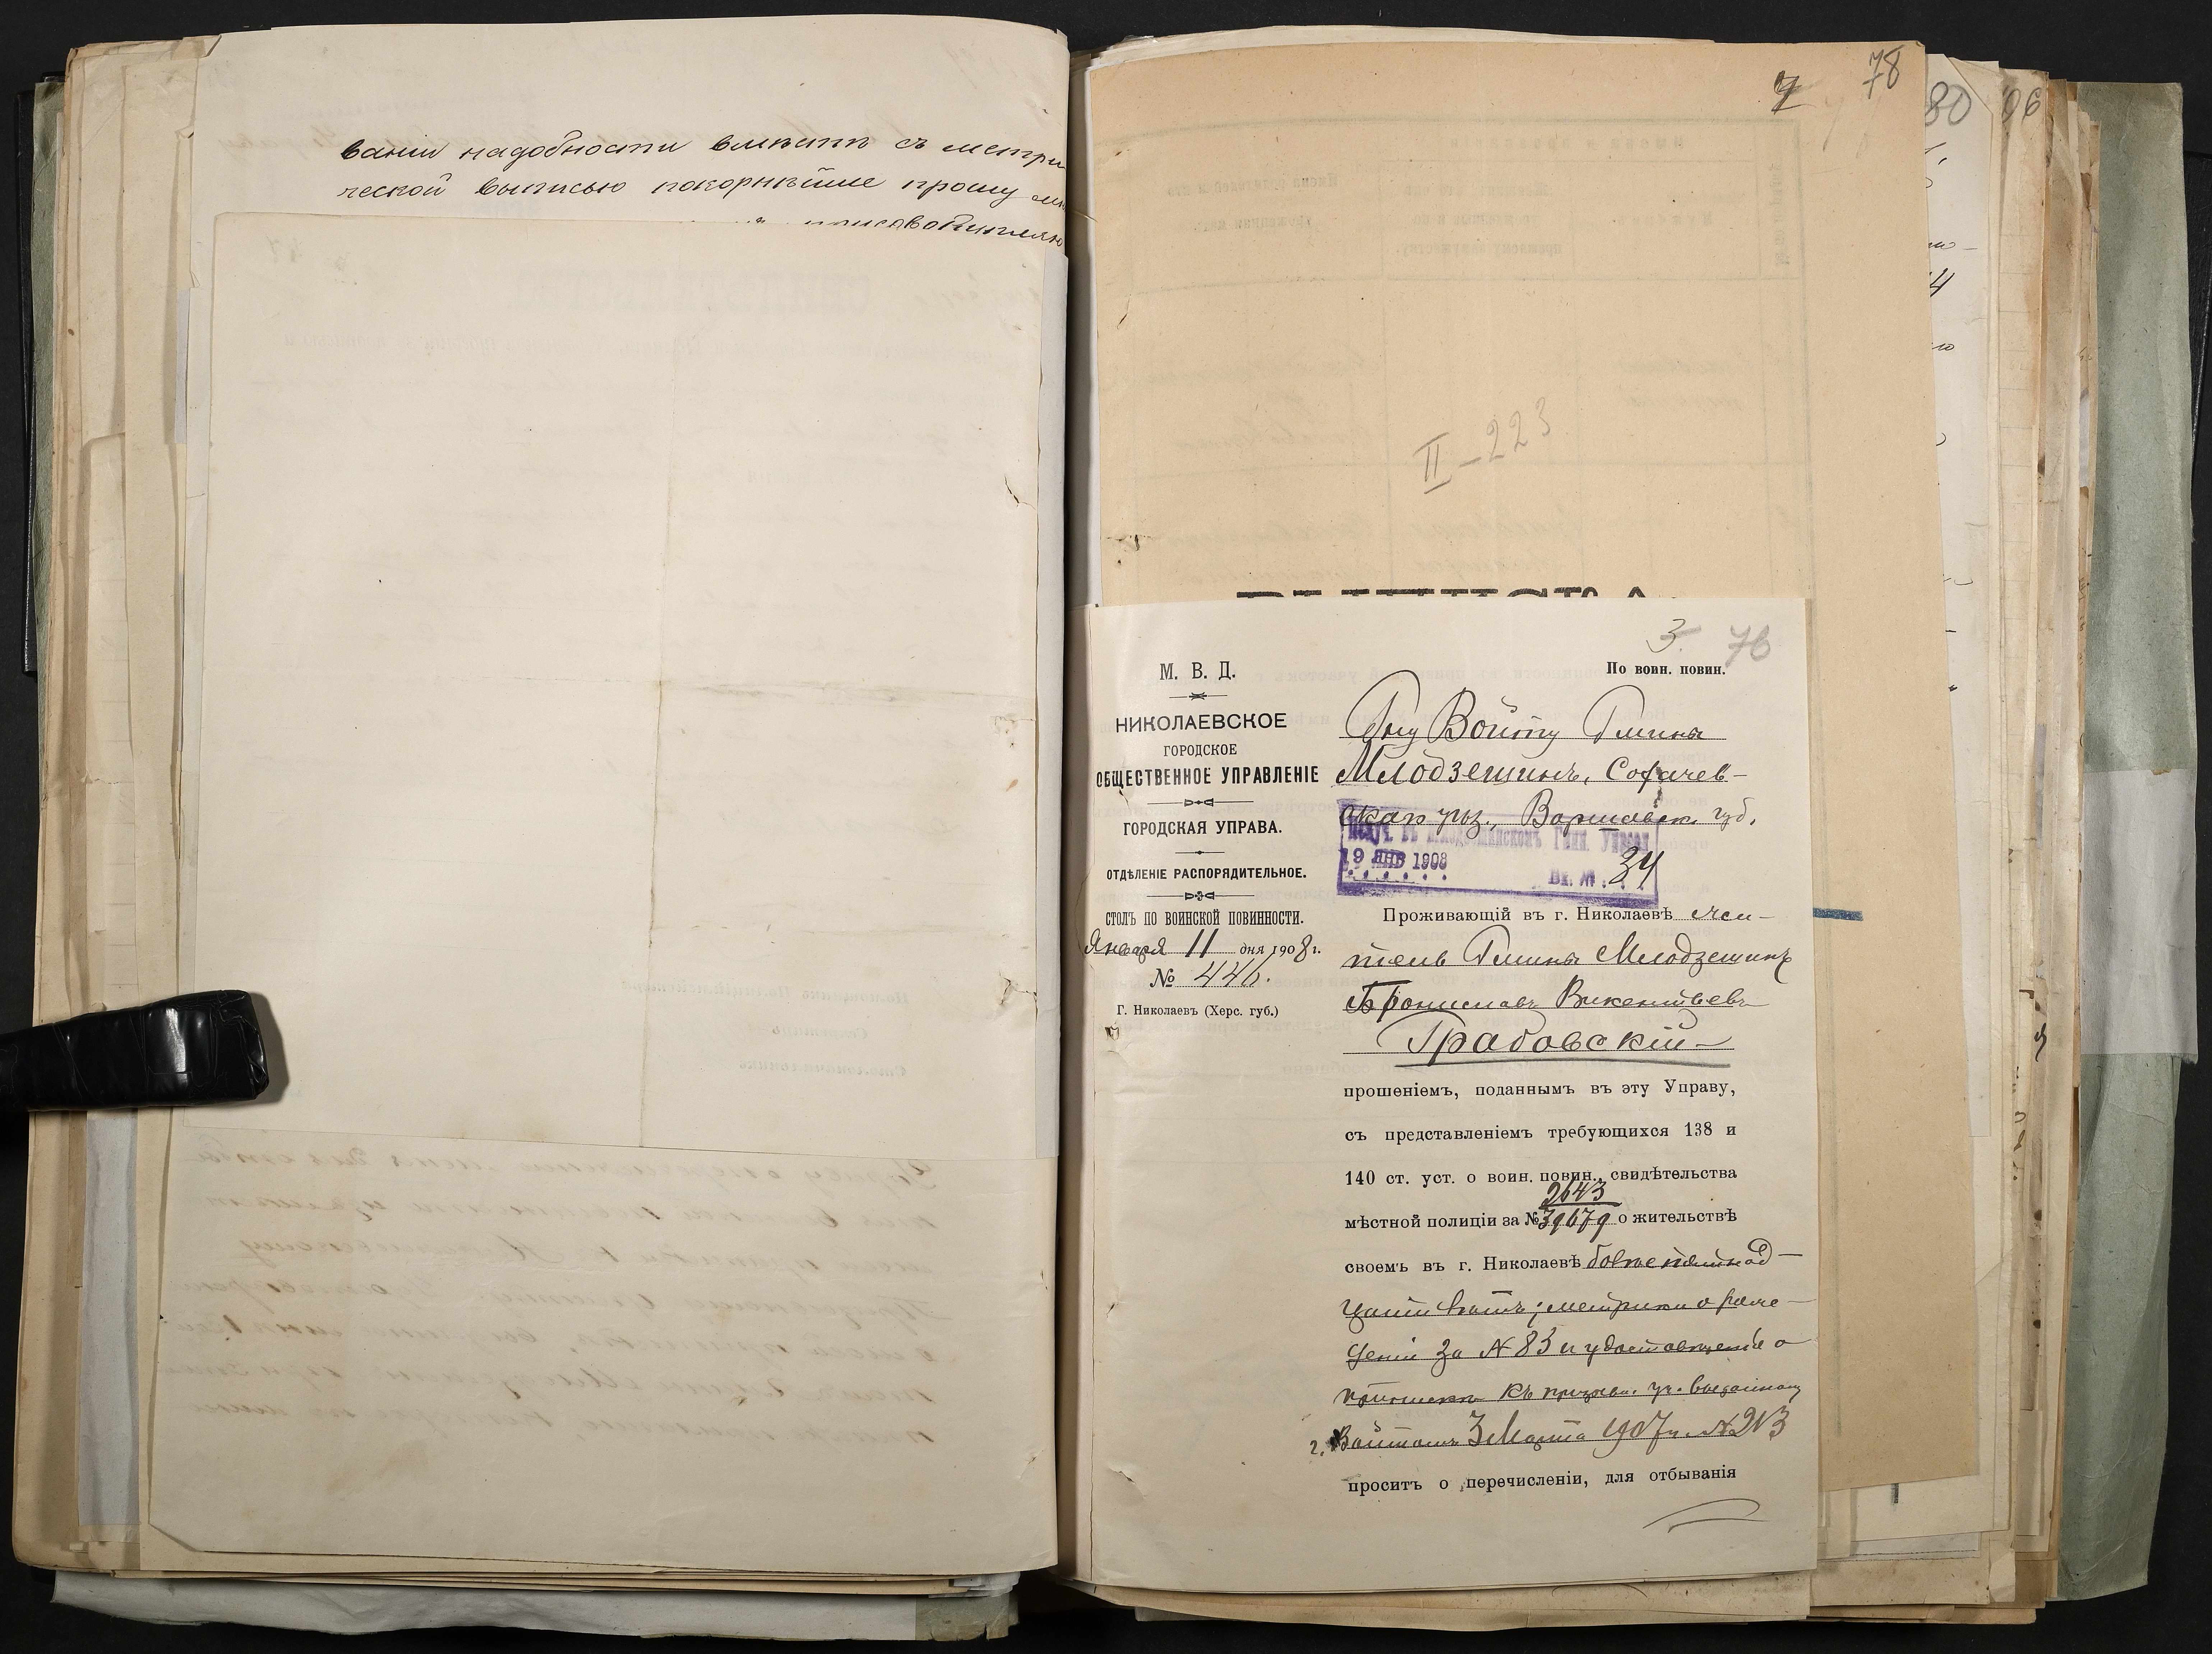 ваніи надобности вмѣстѣ съ метри
ческой выписью покорнѣйше прошу
7
78
80
96
II–223
ВЫПИСКА
3.
76
М. В. Д.
По воин. повин.
НИКОЛАЕВСКОЕ
ГОРОДСКОЕ
ОБЩЕСТВЕННОЕ УПРАВЛЕНІЕ
ГОРОДСКАЯ УПРАВА.
ОТДѢЛЕНІЕ РАСПОРЯДИТЕЛЬНОЕ.
СТОЛЪ ПО ВОИНСКОЙ ПОВИННОСТИ.
Января 11 дня 1908 г.
№ 446.
Г. Николаевъ (Херс. губ.)
Гну Войту Гмины
Млодзешинъ, Сохачев-
скаго уѣз., Варшавск. губ.
Гмин. Управ
19 ЯНВ 1908
Вх. № 34
Проживающій въ г. Николаевѣ жи-
тель Гмины Млодзешинъ
Брониславъ Викентьевъ
Грабовскій
прошеніемъ, поданнымъ въ эту Управу,
съ представленіемъ требующихся 138 и
140 ст. уст. о воин. повин., свидѣтельства
2643
мѣстной полиціи за № 39679 о жительствѣ
своемъ въ г. Николаевѣ болѣе пятнад-
цати лѣтъ; метрики о рож-
деніи за № 83 и удостовѣреніе о
припискѣ къ призывн. уч. выданному
г. Войтомъ 3 Марта 1907 г. № 213
проситъ о перечисленіи, для отбыванія